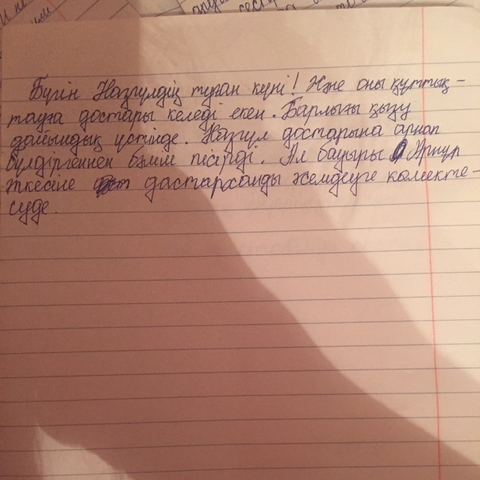 Бүгін Назгүлдің туған күні! Және оны құттық-
тауға достары келеді екен. Барлығы қызу
дайындық үстінде. Назгүл достарына арнап
бүлдіргеннен бәліш пісірді. Ал бауыры Әріпұл
әпкесіне дастарханды әсемдеуге көмекте-
суде.